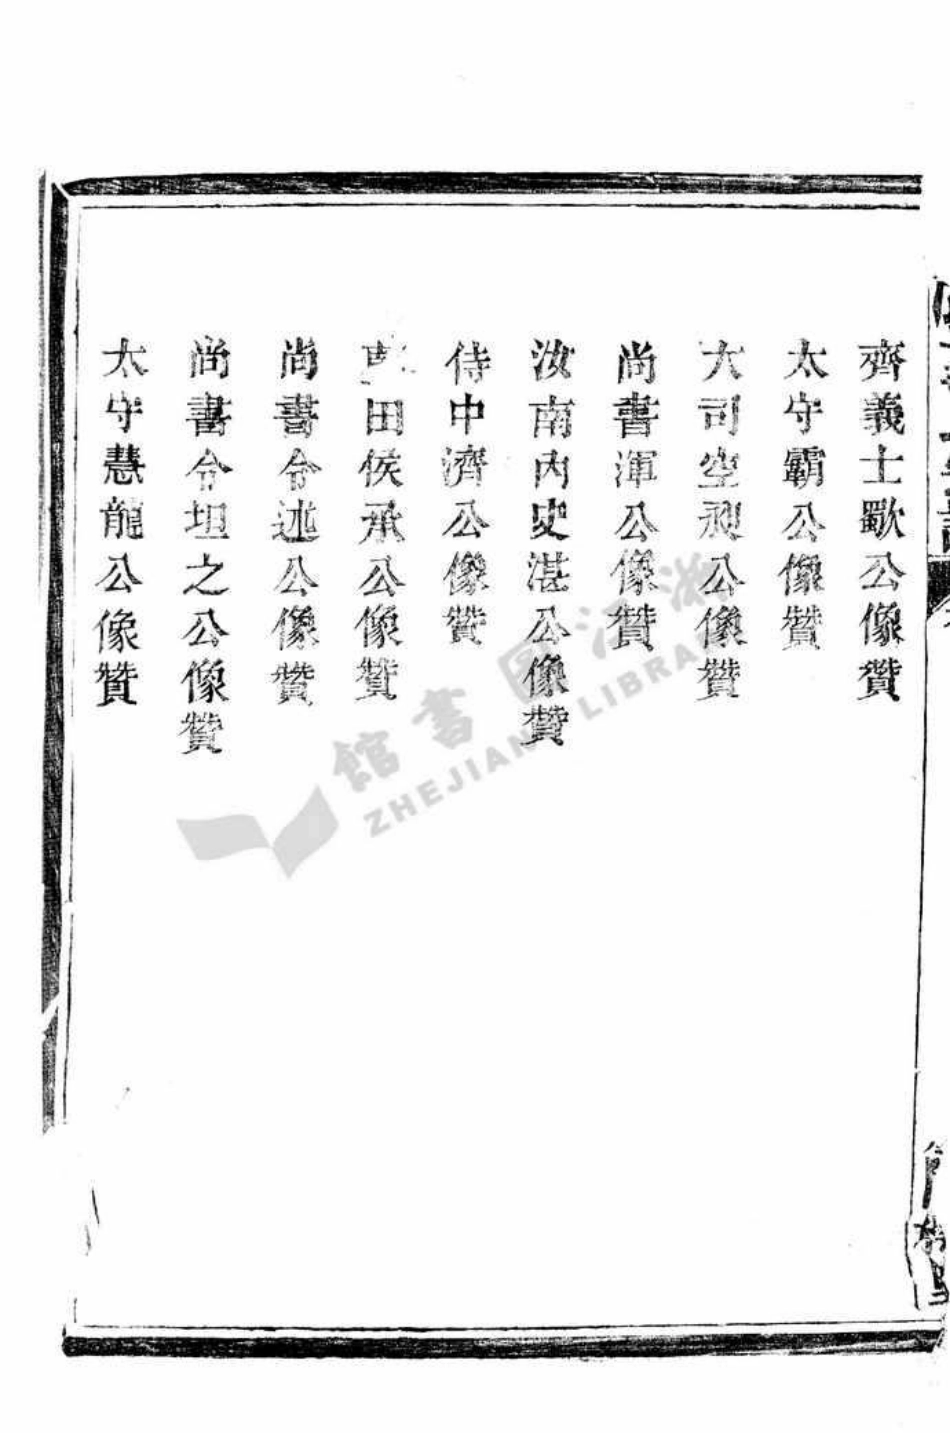 齊義士歜公像贊
太守霸公像贊
大司空昶公像贊
尚書渾公像贊
汝南內史湛公像贊
侍中濟公像贊
田侯承公像贊
尚書令述公像贊
尚書令坦之公像贊
太守慧龍公像贊
浙江圖書館
ZHEJIANG LIBRARY